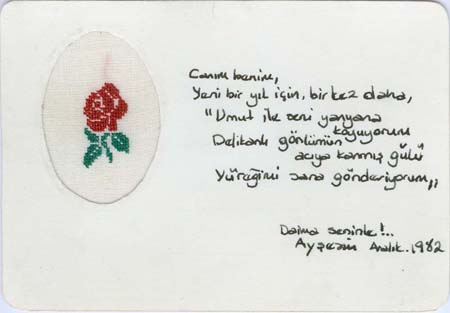 Canım benim,
Yeni bir yıl için, bir kez daha,
"Umut ile seni yanyana
koyuyorum
Delikanlı gönlümün
acıya kanmış gülü
Yüreğimi sana gönderiyorum,,
Daima seninle!..
Ayşecim Aralık.1982